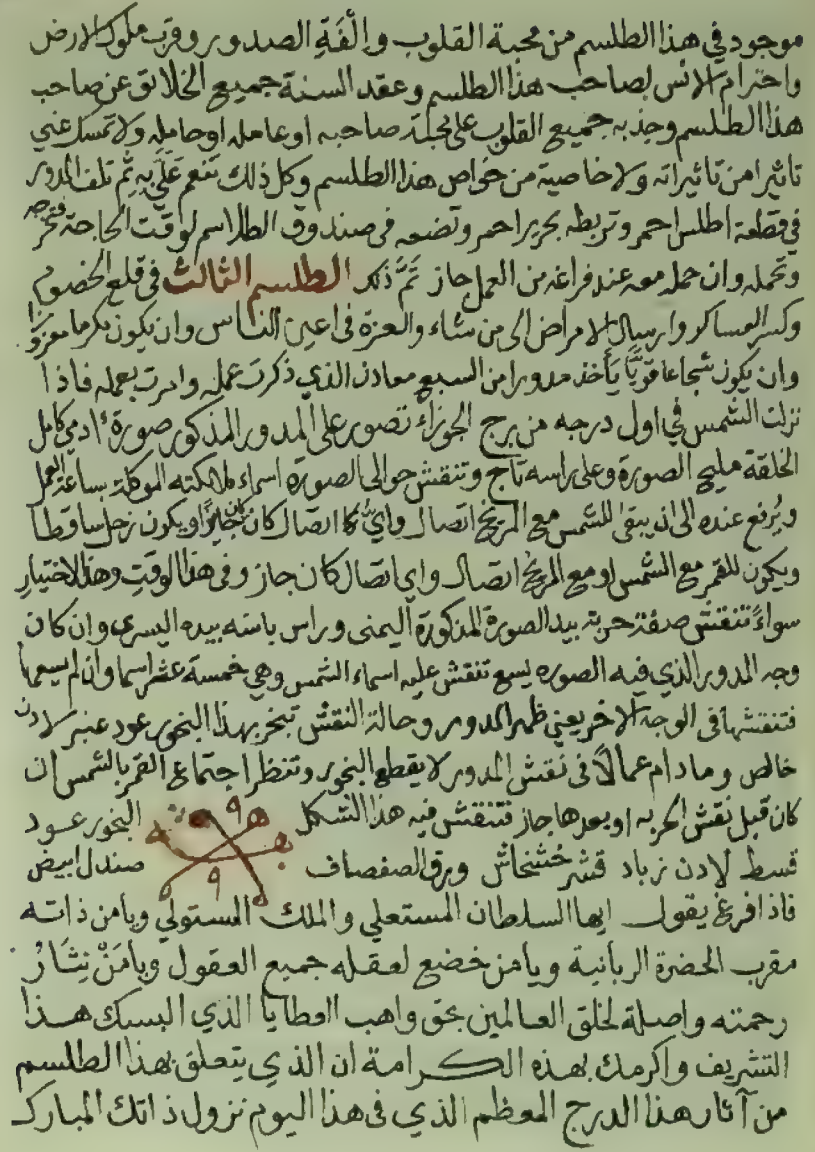 موجود في هذا الطلسم من محبة القلوب والْفَةِ الصدور وقرب ملوك الارض
واحترام الانس لصاحب هذا الطلسم وعقد السنة جميع الخلائق عن صاحب
هذا الطلسم وجذبه جميع القلوب على محبة صاحبه او عامله او حامله ولا تمسك عني
تاثيرا من تاثيراته ولا خاصية من خواص هذا الطلسم وكل ذلك تنعم عَلَيَّ به ثم تلف المدور
في قطعة اطلس احمر وتربطه بحرير احمر وتضعه في صندوق الطلاسم لوقت الحاجة فتخرجه
وتحمله وان حمله معه عند فراغه من العمل جاز تَمَّ ذلك الطلسم الثالث في قلع الخصوم
وكسر العساكر وارسال الامراض الى من شاء والعزة في اعين الناس وان يكون مكرما معززا
وان يكون شجاعا قويًّا يأخذ مدورا من السبع معادن الذي ذكرت عمله وامرت بعمله فاذا
نزلت الشمس في اول درجه من برج الجوزاء تصور على المدور المذكور صورة ادمي كامل
الخلقة مليح الصورة وعلى راسه تاج وتنقش حوالى الصوره اسماء ملائكته الموكلة بساعة العمل
ويُرفع عنده الى ان يبقى للشمس مع المريخ اتصال وايّ اتصال كان جايزًا ويكون زحل ساقطا
ويكون للقمر مع الشمس او مع المريخ اتصال واي اتصال كان جاز وفى هذا الوقت وهذا الاختيار
سواءً تنقش صفة حربة بيد الصورة المذكورة اليمنى وراس باسه بيده اليسرى وان كان
وجه المدور الذي فيه الصوره يسع تنقش عليه اسماء الشمس وهي خمسة عشر اسما وان لم يسعها
فتنقشها في الوجه الاخر يعني ظهر المدور وحالة النقش تبخر بهذا البخور عود عنبر لادن
خالص وما دام عمالاً في نقش المدور لا يقطع البخور وتنظر اجتماع القمر بالشمس ان
كان قبل نقش الحربه او بعدها جاز فتنقش فيه هذا الشكل البخور عود
قسط لادن زباد قشر خشخاش ورق الصفصاف صندل ابيض
فاذا فرغ يقول ايها السلطان المستعلي والملك المستولي ويا من ذاته
مقرب الحضرة الربانية ويا من خضع لعقله جميع العقول ويا مَنْ نِثَارُ
رحمته واصلة لخلق العالمين بحق واهب العطايا الذي البسك هذا
التشريف واكرمك بهذه الكرامة ان الذي يتعلق بهذا الطلسم
من آثار هذا الدرج المعظم الذي في هذا اليوم نزول ذاتك المبارك